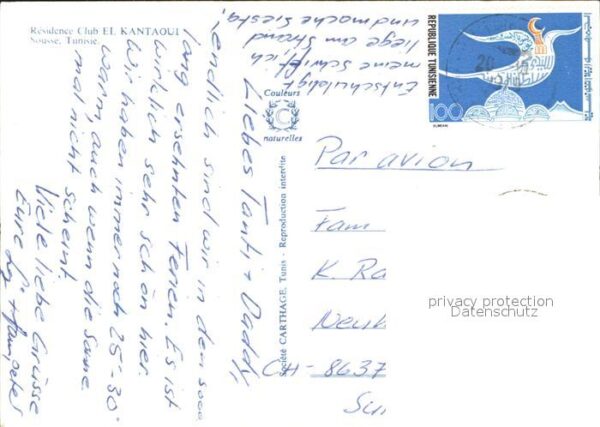 Résidence Club EL KANTAOUI
Sousse, Tunisie.
Entschuldigt
meine Schrift, ich
liege am Strand
und mache Siesta!
Liebes Tanti + Daddy,
endlich sind wir in den sooo
lang ersehnten Ferien. Es ist
wirklich sehr schön hier.
Wir haben immer noch 25-30°
warm, auch wenn die Sonne
mal nicht scheint.
Viele liebe Grüsse
Eure + Hanspeter
Couleurs
C
naturelles
Société CARTHAGE, Tunis - Reproduction interdite
REPUBLIQUE TUNISIENNE
100
20
Par avion
Fam
K. Ra
Neu
CH-8637
privacy protection
Datenschutz